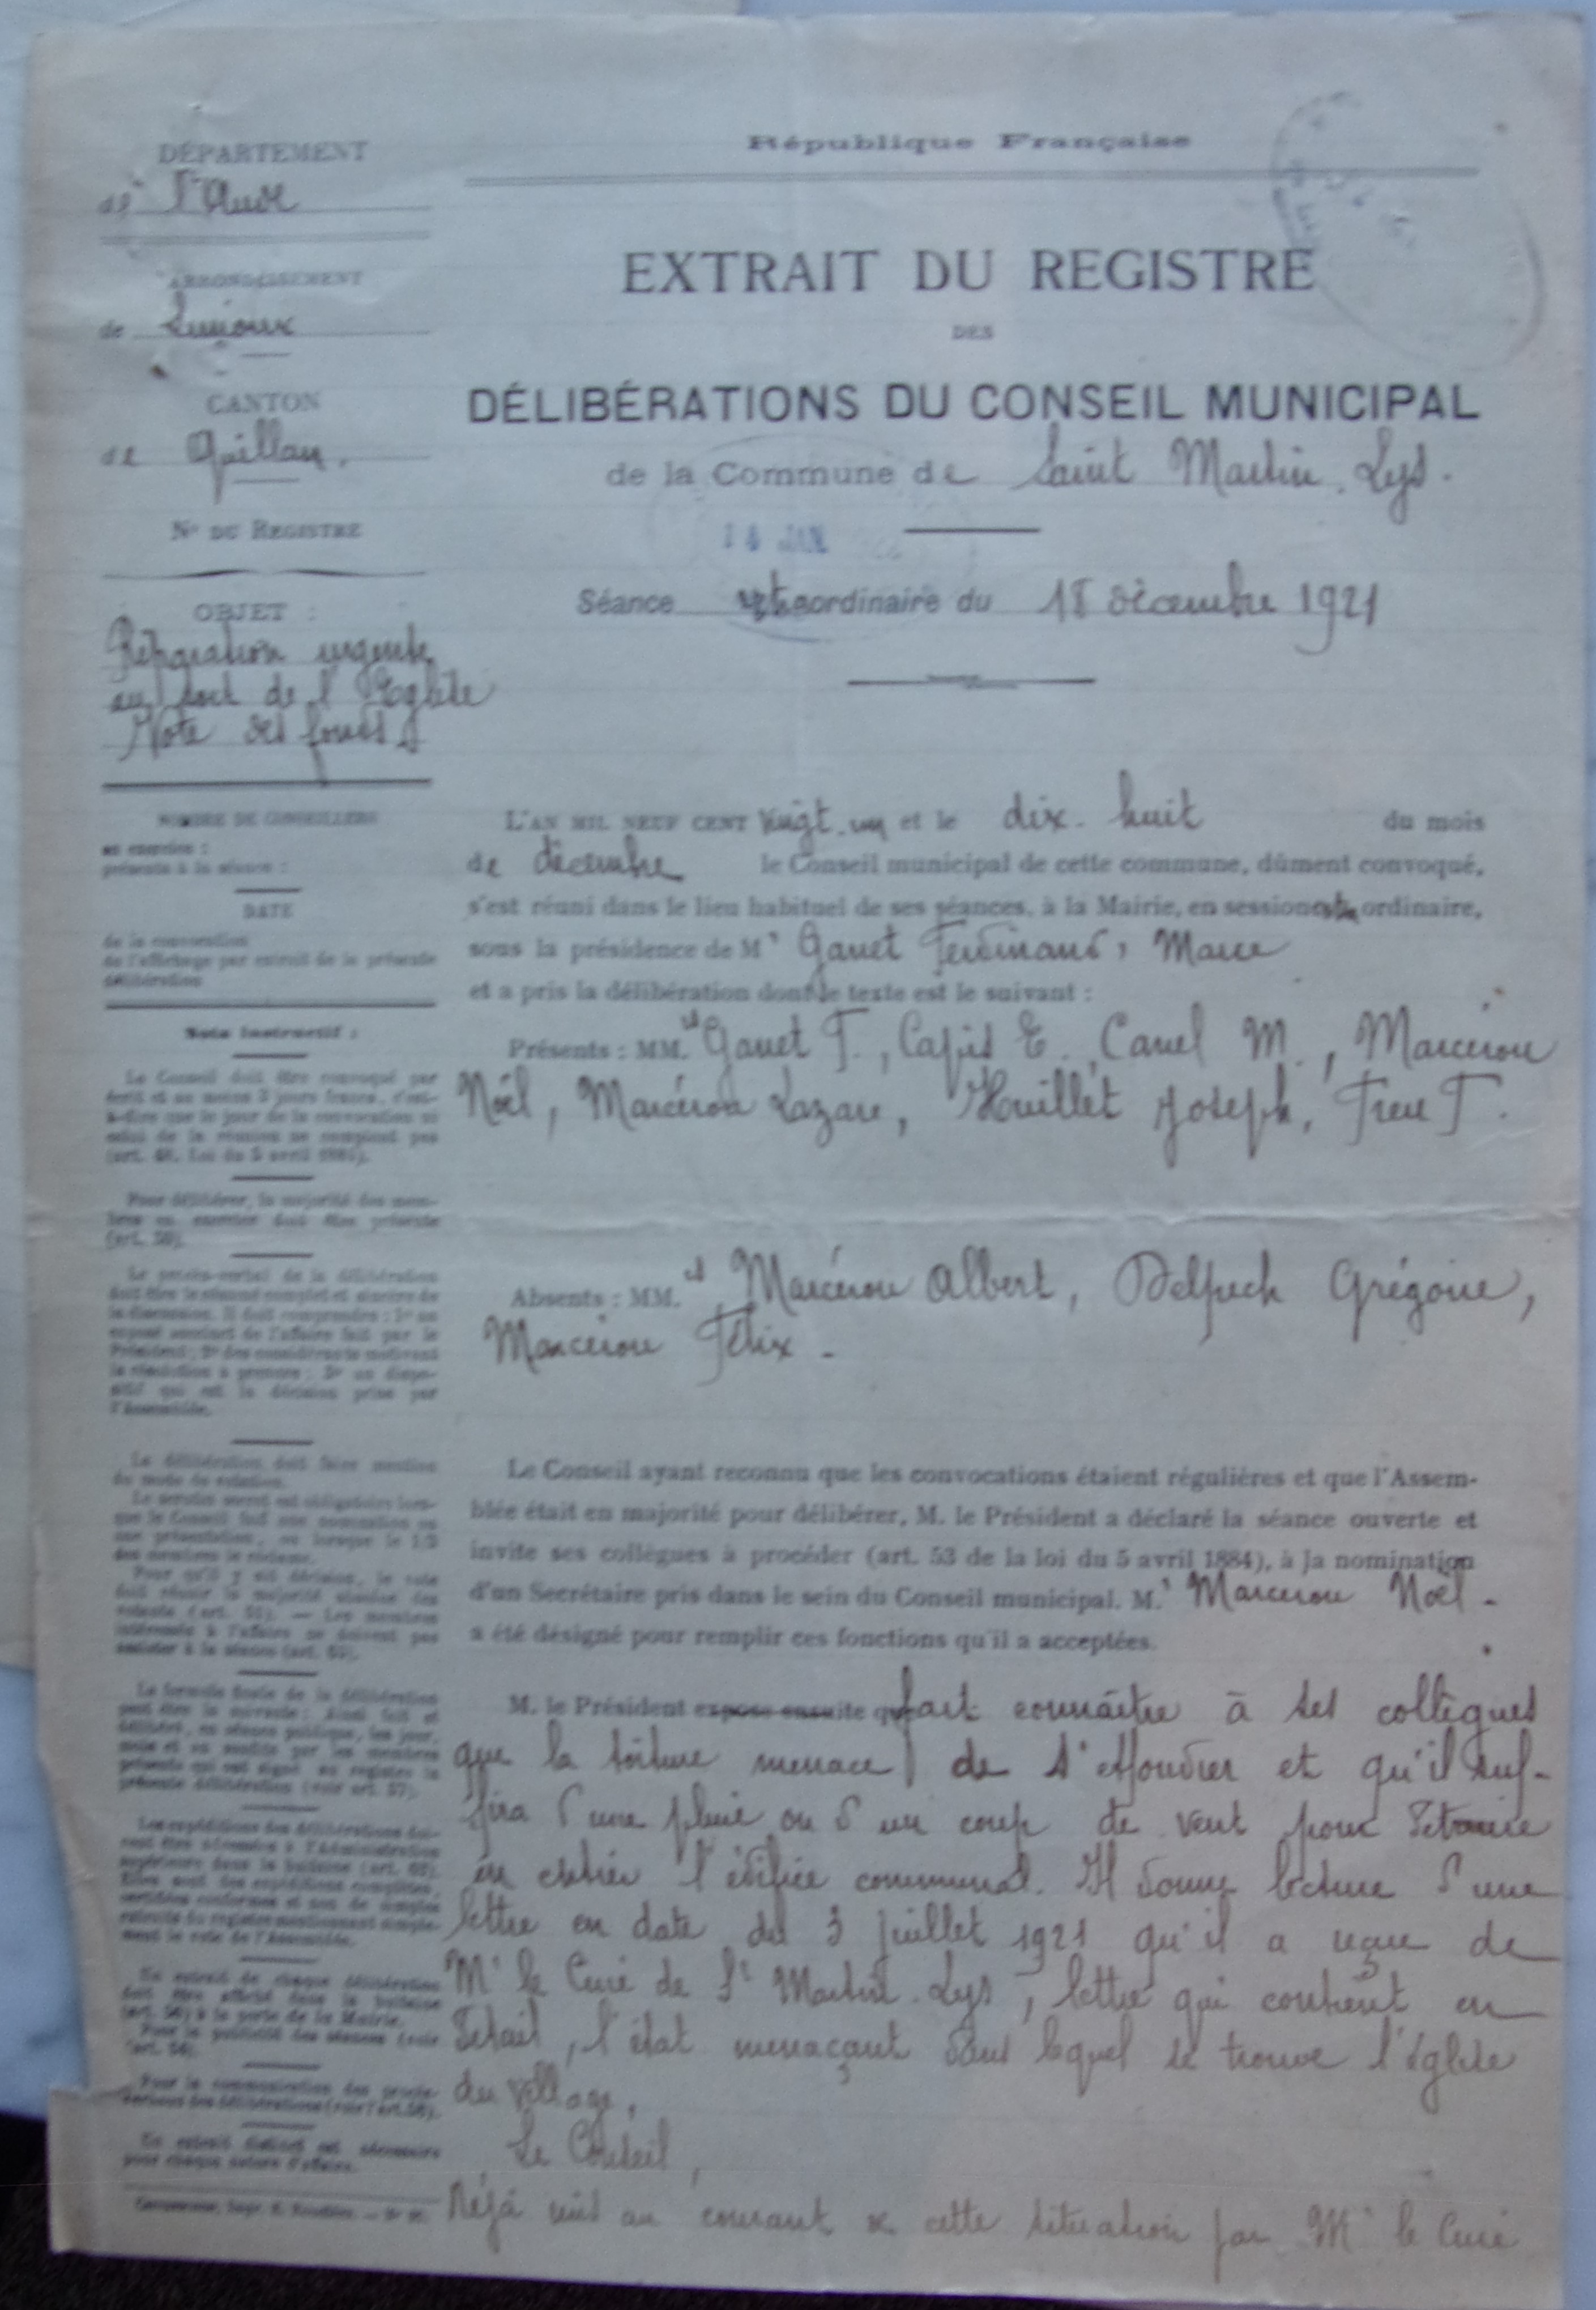 République Française
DÉPARTEMENT
de l'Aude
ARRONDISSEMENT
de Limoux
CANTON
de Quillan.
N° DU REGISTRE
OBJET :
Réparation urgente
au toit de l'Eglise
Vote des fonds
NOMBRE DE CONSEILLERS
en exercice :
présents à la séance :
DATE
de la convocation
de l'affichage par extrait de la présente
délibération
Nota instructif :
Le Conseil doit être convoqué par
écrit et au moins 3 jours francs, c'est-
à-dire que le jour de la convocation ni
celui de la réunion ne comptent pas
(art. 48, Loi du 5 avril 1884).
Pour délibérer, la majorité des mem-
bres en exercice doit être présente
(art. 50).
Le procès-verbal de la délibération
doit être le résumé complet et sincère de
la discussion. Il doit comprendre : 1° un
exposé succinct de l'affaire fait par le
Président ; 2° des considérants motivant
la résolution à prendre ; 3° un dispo-
sitif qui est la décision prise par
l'Assemblée.
La délibération doit faire mention
du mode de votation.
Le scrutin secret est obligatoire lors-
que le Conseil fait une nomination ou
une présentation, ou lorsque le 1/3
des membres le réclame.
Pour qu'il y ait décision, le vote
doit réunir la majorité absolue des
votants (art. 51). — Les membres
intéressés à l'affaire ne doivent pas
assister à la séance (art. 64).
La formule finale de la délibération
peut être la suivante : Ainsi fait et
délibéré, en séance publique, les jour,
mois et an susdits par les membres
présents qui ont signé au registre la
présente délibération (voir art. 57).
Les expéditions des délibérations doi-
vent être adressées à l'Administration
supérieure dans la huitaine (art. 62).
Elles sont des expéditions complètes,
certifiées conformes et non de simples
extraits du registre mentionnant simple-
ment le vote de l'Assemblée.
Un extrait de chaque délibération
doit être affiché dans la huitaine
(art. 56) à la porte de la Mairie.
Pour la publicité des séances (voir
art. 54).
Pour la communication des procès-
verbaux des délibérations (voir l'art. 58).
Un extrait distinct est nécessaire
pour chaque nature d'affaire.
EXTRAIT DU REGISTRE
DES
DÉLIBÉRATIONS DU CONSEIL MUNICIPAL
de la Commune de Saint Martin. Lys.
JAN
Séance extraordinaire du 18 décembre 1921
L'AN MIL NEUF CENT vingt-un et le dix-huit du mois
de décembre le Conseil municipal de cette commune, dûment convoqué,
s'est réuni dans le lieu habituel de ses séances, à la Mairie, en session extra ordinaire,
sous la présidence de Mr Gauet Ferdinand, Maire
et a pris la délibération dont le texte est le suivant :
Présents : MM.rs Gauet F., Capis E., Canel M., Marcerou
Noël, Marcérou Lazare, Houillet Joseph, F.
Absents : MM.rs Marcérou Albert, Delpech Grégoire,
Marcerou Félix -
Le Conseil ayant reconnu que les convocations étaient régulières et que l'Assem-
blée était en majorité pour délibérer, M. le Président a déclaré la séance ouverte et
invite ses collègues à procéder (art. 53 de la loi du 5 avril 1884), à la nomination
d'un Secrétaire pris dans le sein du Conseil municipal. M.r Marcerou Noël -
a été désigné pour remplir ces fonctions qu'il a acceptées.
M. le Président expose ensuite que fait connaître à ses collègues
que la toiture menace de s'effondrer et qu'il suf-
fira d'une pluie ou d'un coup de vent pour détruire
en entier l'édifice communal. Il donne lecture d'une
lettre en date du 3 juillet 1921 qu'il a reçue de
Mr le Curé de St Martin-Lys, lettre qui contient en
détail, l'état menaçant dans lequel se trouve l'église
du village.
Le Conseil,
Déjà mis au courant de cette situation par Mr le Curé